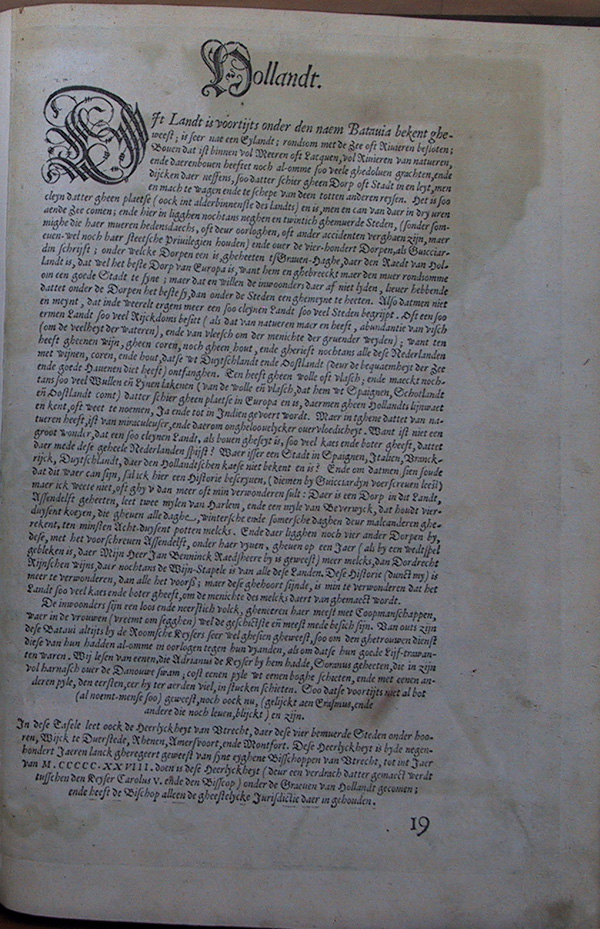 Hollandt.
Dit Landt is voortijts onder den naem Batauia bekent ghe-
weest; is seer nae een Eylandt; rondsom met de Zee oft Riuieren besloten;
Bouen dat ist binnen vol Meeren oft Lacquen, vol Riuieren van natueren,
ende daerenbouen heeftet noch al-omme soo veele ghedoluen grachten, ende
dijcken daer neffens, soo datter schier gheen Dorp oft Stadt in en leyt, men
en mach te wagen ende te schepe van deen totten anderen reysen. Het is soo
cleyn datter gheen plaetse (oock int alderbinnenste des landts) en is, men en can van daer in dry uren
aende Zee comen; ende hier in ligghen nochtans neghen en twintich ghemuerde Steden, (sonder som-
mighe die haer mueren hedensdaechs, oft deur oorloghen, oft ander accidenten verghaen zijn, maer
euen-wel noch haer steetsche Priuilegien houden) ende ouer de vier-hondert Dorpen, als Guicciar-
din schrijft; onder welcke Dorpen een is, gheheeten tsGrauen-Haghe, daer den Raedt van Hol-
landt is, dat wel het beste Dorp van Europa is, want hem en ghebreeckt maer den muer rondsomme
om een goede Stadt te syne; maer dat en willen de inwoonders daer af niet lyden, lieuer hebbende
dattet onder de Dorpen het beste sy, dan onder de Steden een ghemeyne te heeten. Also datmen niet
en meynt, dat inde weerelt ergens meer een soo cleynen Landt soo veel Steden begrijpt. Oft een soo
ermen Landt soo veel Rijckdoms besitt (als dat van natueren maer en heeft, abundantie van visch
(om de veelheyt der wateren), ende van vleesch om der menichte der gruender weyden); want ten
heeft gheenen wijn, gheen coren, noch gheen hout, ende gherieft nochtans alle dese Nederlanden
met wijnen, coren, ende hout, datse wt Duytschlandt ende Oostlandt (deur de bequaemheyt der Zee
ende goede Hauenen diet heeft) ontfanghen. Een heeft gheen wolle oft vlasch; ende maeckt noch-
tans soo veel Wullen eñ Lynen lakenen (van de wolle eñ vlasch, dat hem wt Spaignen, Schotlandt
eñ Oostlandt comt) datter schier gheen plaetse in Europa en is, daermen gheen Hollandts lijnwaet
en kent, oft weet te noemen, Ja ende tot in Indien geuoert wordt. Maer in tghene dattet van na-
tueren heeft, ist van miraculeuser, ende daerom ongheloouelycker ouervloedicheyt. Want ist niet een
groot wonder, dat een soo cleynen Landt, als bouen gheseyt is, soo veel kaes ende boter gheeft, dattet
daer mede dese geheele Nederlanden spijst? Waer isser een Stadt in Spaignen, Italien, Vranck-
rijck, Duytschlandt, daer den Hollandtschen kaese niet bekent en is? Ende om datmen sien soude
dat dit waer can sijn, sal ick hier een Historie bescryuen, (diemen by Guicciardyn voorscreuen leest)
maer ick weete niet, oft ghy v dan meer oft min verwonderen sult: Daer is een Dorp in dit Landt,
Assendelft geheeten, leet twee mylen van Harlem, ende een myle van Beverwyck, dat houdt vier-
duysent koeyen, die gheuen alle daghe, wintersche ende somersche daghen deur malcanderen ghe-
rekent, ten minsten Acht-duysent potten melcks. Ende daer ligghen noch vier ander Dorpen by,
dese, met het voorschreuen Assendelft, onder haer vyuen, gheuen op een Jaer (als by een wedtspel
gebleken is, daer Mijn Heer Jan Benninck Raedsheere by is geweest) meer melcks, dan Dordrecht
Rijnschen wijns, daer nochtans de Wijn-Stapele is van alle dese Landen. Dese Historie (dunct my) is
meer te verwonderen, dan alle het voorß; maer dese ghehoort sijnde, is min te verwonderen dat het
Landt soo veel kaes ende boter gheeft, om de menichte des melcks daert van ghemaeckt wordt.
De inwoonders sijn een loos ende neerstich volck, gheneeren haer meest met Coopmanschappen,
waer in de vrouwen (vreemt om segghen) wel de geschicktste eñ meest mede besich sijn. Van outs zijn
dese Bataui altijts by de Roomsche Keysers seer wel ghesien gheweest, soo om den ghetrouwen dienst
diese van hun hadden al-omme in oorlogen tegen hun vyanden, als om datse hun goede Lijf-trawan-
ten waren. Wij lesen van eenen, die Adrianus de Keyser by hem hadde, Soranus geheeten, die in zijn
vol harnasch ouer de Danouwe swam, cost eenen pyle wt eenen boghe schieten, ende met eenen an-
deren pyle, den eersten, eer hy ter aerden viel, in stucken schieten. Soo datse voortijts niet al bot
(al noemt-mense soo) geweest, noch oock nu, (gelijckt aen Erasmus, ende
andere die noch leuen, blijckt) en zijn.
In dese Tafele leet oock de Heerlyckheyt van Vtrecht, daer dese vier bemuerde Steden onder hoo-
ren, Wijck te Duerstede, Rhenen, Amersvoort, ende Montfort. Dese Heerlyckheyt is byde negen-
hondert Jaeren lanck gheregeert geweest van syne eyghene Bisschoppen van Vtrecht, tot int Jaer
van M.CCCCC.XXVIII. doen is dese Heerlyckheyt (deur een verdrach datter gemaect werdt
tusschen den Keyser Carolus V. ende den Bisscop) onder de Graeuen van Hollandt gecomen;
ende heeft de Bischop alleen de gheestelycke Jurisdictie daer in gehouden.
19